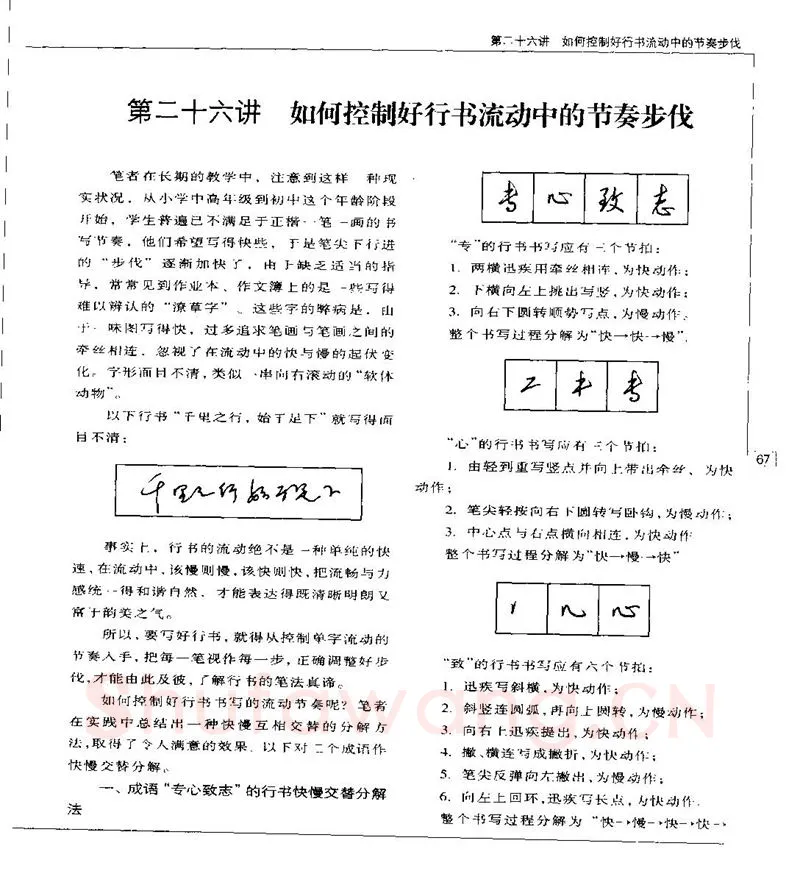 第二十六讲 如何控制好行书流动中的节奏步伐
第二十六讲 如何控制好行书流动中的节奏步伐
笔者在长期的教学中，注意到这样一种现
实状况，从小学中高年级到初中这个年龄阶段
开始，学生普遍已不满足于正楷一笔一画的书
写节奏，他们希望写得快些，于是笔尖下行进
的“步伐”逐渐加快了，由于缺乏适当的指
导，常常见到作业本、作文簿上的是一些写得
难以辨认的“潦草字”。这些字的弊病是，由
于一味图写得快，过多追求笔画与笔画之间的
牵丝相连，忽视了在流动中的快与慢的起伏变
化。字形面目不清，类似一串向右滚动的“软体
动物”。
以下行书“千里之行，始于足下”就写得面
目不清：
千里之行始于足下
事实上，行书的流动绝不是一种单纯的快
速，在流动中，该慢则慢，该快则快，把流畅与力
感统一得和谐自然，才能表达得既清晰明朗又
富于韵美之气。
所以，要写好行书，就得从控制单字流动的
节奏入手，把每一笔视作每一步，正确调整好步
伐，才能由此及彼，了解行书的笔法真谛。
如何控制好行书书写的流动节奏呢？笔者
在实践中总结出一种快慢互相交替的分解方
法，取得了令人满意的效果。以下对二个成语作
快慢交替分解。
一、成语“专心致志”的行书快慢交替分解
法
专 心 致 志
“专”的行书书写应有三个节拍：
1. 两横迅疾用牵丝相连，为快动作；
2. 下横向左上挑出写竖，为快动作；
3. 向右下圆转顺势写点，为慢动作。
整个书写过程分解为“快→快→慢”。
“心”的行书书写应有三个节拍：
1. 由轻到重写竖点并向上带出牵丝，为快
动作；
2. 笔尖轻按向右下圆转写卧钩，为慢动作；
3. 中心点与右点横向相连，为快动作
整个书写过程分解为“快→慢→快”
“致”的行书书写应有六个节拍：
1. 迅疾写斜横，为快动作；
2. 斜竖连圆弧，再向上圆转，为慢动作；
3. 向右上迅疾提出，为快动作；
4. 撇、横连写成撇折，为快动作；
5. 笔尖反弹向左撇出，为慢动作；
6. 向左上回环，迅疾写长点，为快动作。
整个书写过程分解为“快→慢→快→快→
67
Shufawang.CN